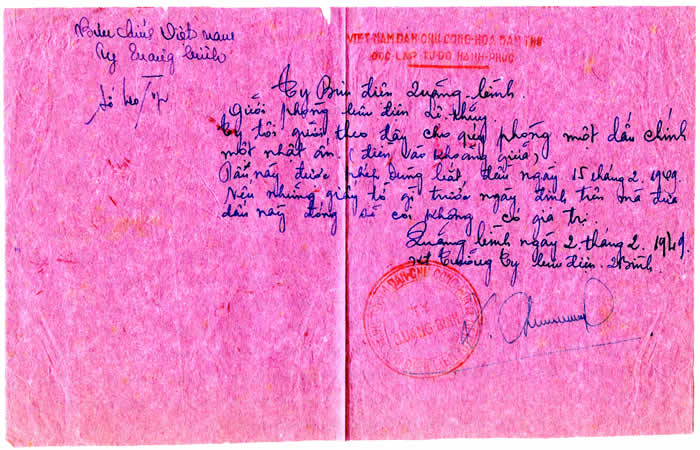 Bưu chính Việt nam
Ty Quảng bình
Số
VIỆT-NAM DÂN-CHỦ CỘNG-HÒA DÂN THỨ
ĐỘC-LẬP TỰ-DO HẠNH-PHÚC
Ty Bưu điện Quảng-bình
gửi phòng bưu điện Lê thủy.
Ty tôi gửi theo đây cho quý phòng một dấu chính
một nhật ấn. (điền vào khoảng giữa)
Dấu này được phép dùng bắt đầu ngày 15 tháng 2. 1949.
Nếu những giấy tờ gì trước ngày định trên mà đưa
dấu này đóng sẽ coi không có giá trị.
Quảng bình ngày 2. tháng 2. 1949.
Trưởng Ty bưu điện Q Bình.
DÂN-CHỦ CỘNG-HÒA
QUẢNG BÌNH